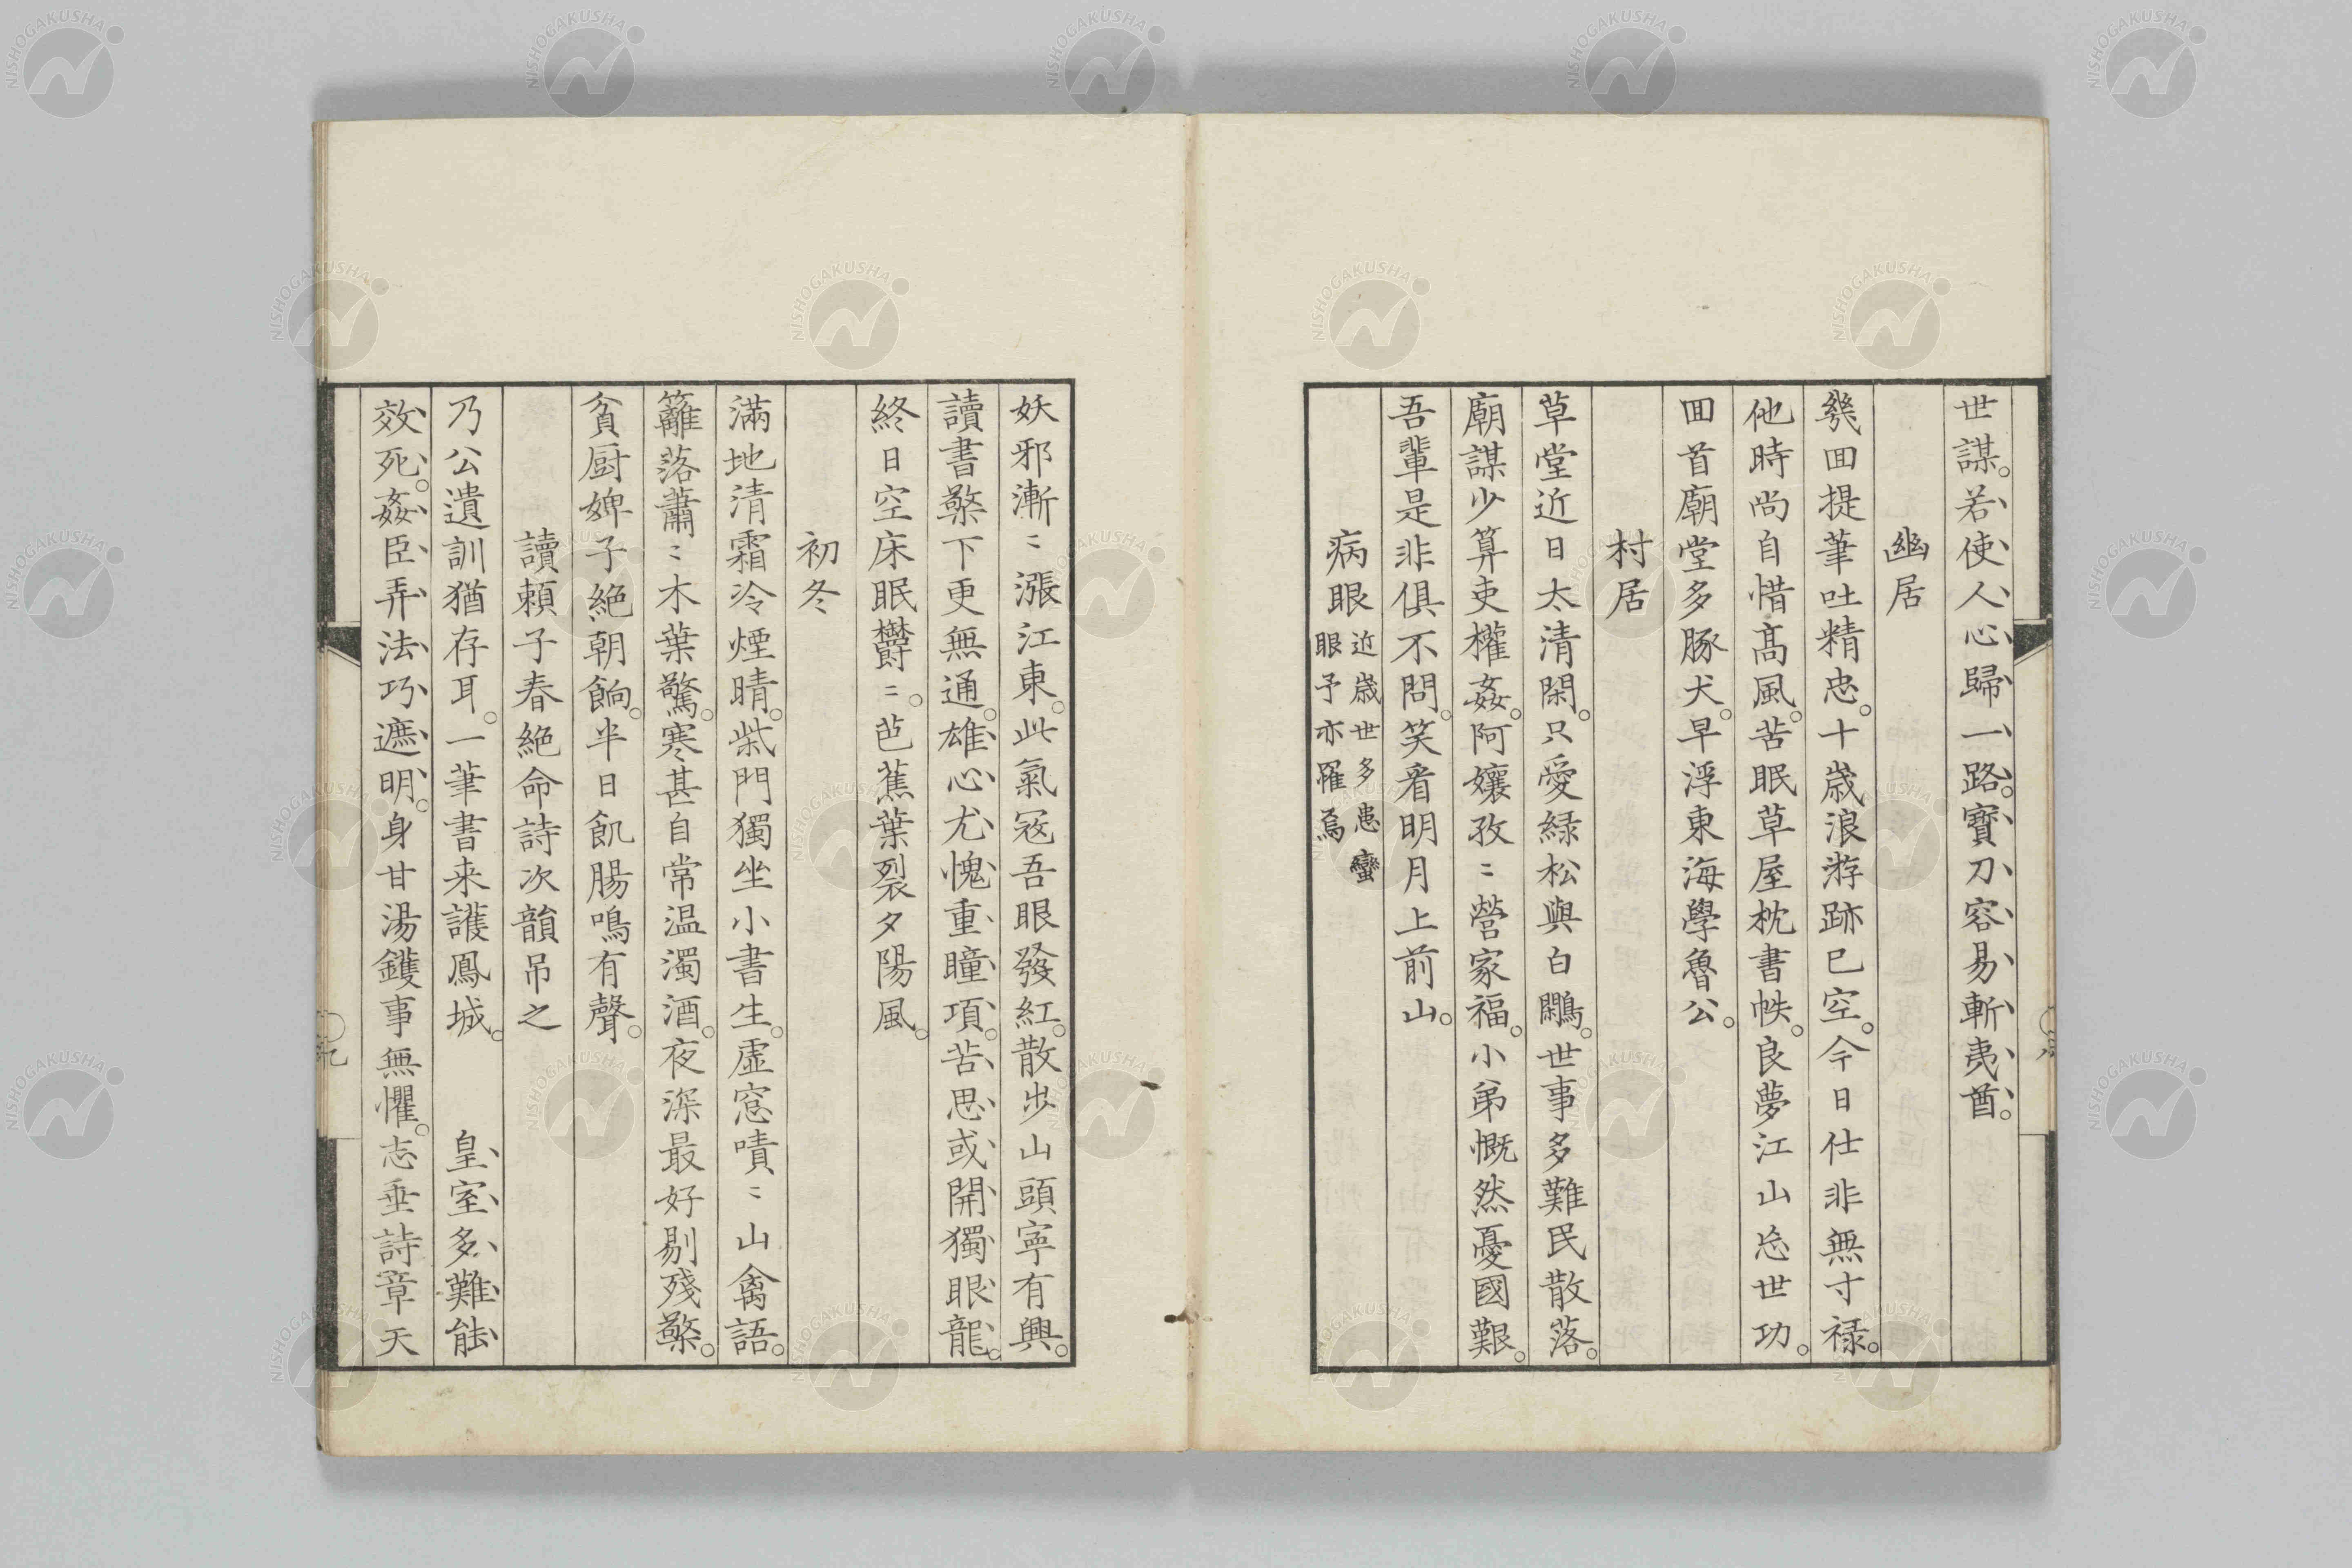 世謀。若使人心歸一路。寶刀容易斬夷酋。
幽居
幾回提筆吐精忠。十歳浪游跡已空。今日仕非無寸禄。
他時尚自惜髙風。苦眠草屋枕書帙。良夢江山忘世功。
回首廟堂多豚犬。早浮東海學魯公。
村居
草堂近日太清閑。只愛緑松與白鷳。世事多難民散落。
廟謀少算吏權姦。阿孃孜〻營家福。小弟慨然憂國艱。
吾輩是非俱不問。笑看明月上前山。
病眼 近歳世多患蠻
眼予亦罹焉
妖邪漸〻漲江東。此氣冦吾眼發紅。散歩山頭寧有興。
讀書檠下更無通。雄心尤愧重瞳項。苦思或開獨眼龍。
終日空床眠欝〻。芭蕉葉裂夕陽風。
初冬
滿地清霜冷煙晴。柴門獨坐小書生。虚窓嘖〻山禽語。
籬落蕭〻木葉驚。寒甚自常温濁酒。夜深最好剔殘檠。
貧厨婢子絶朝餉。半日飢腸鳴有聲。
讀頼子春絶命詩次韻吊之
乃公遺訓猶存耳。一筆書来護鳳城。 皇室多難能
效死。姦臣弄法巧遮明。身甘湯鑊事無懼。志垂詩章天
NISHOGAKUSHA